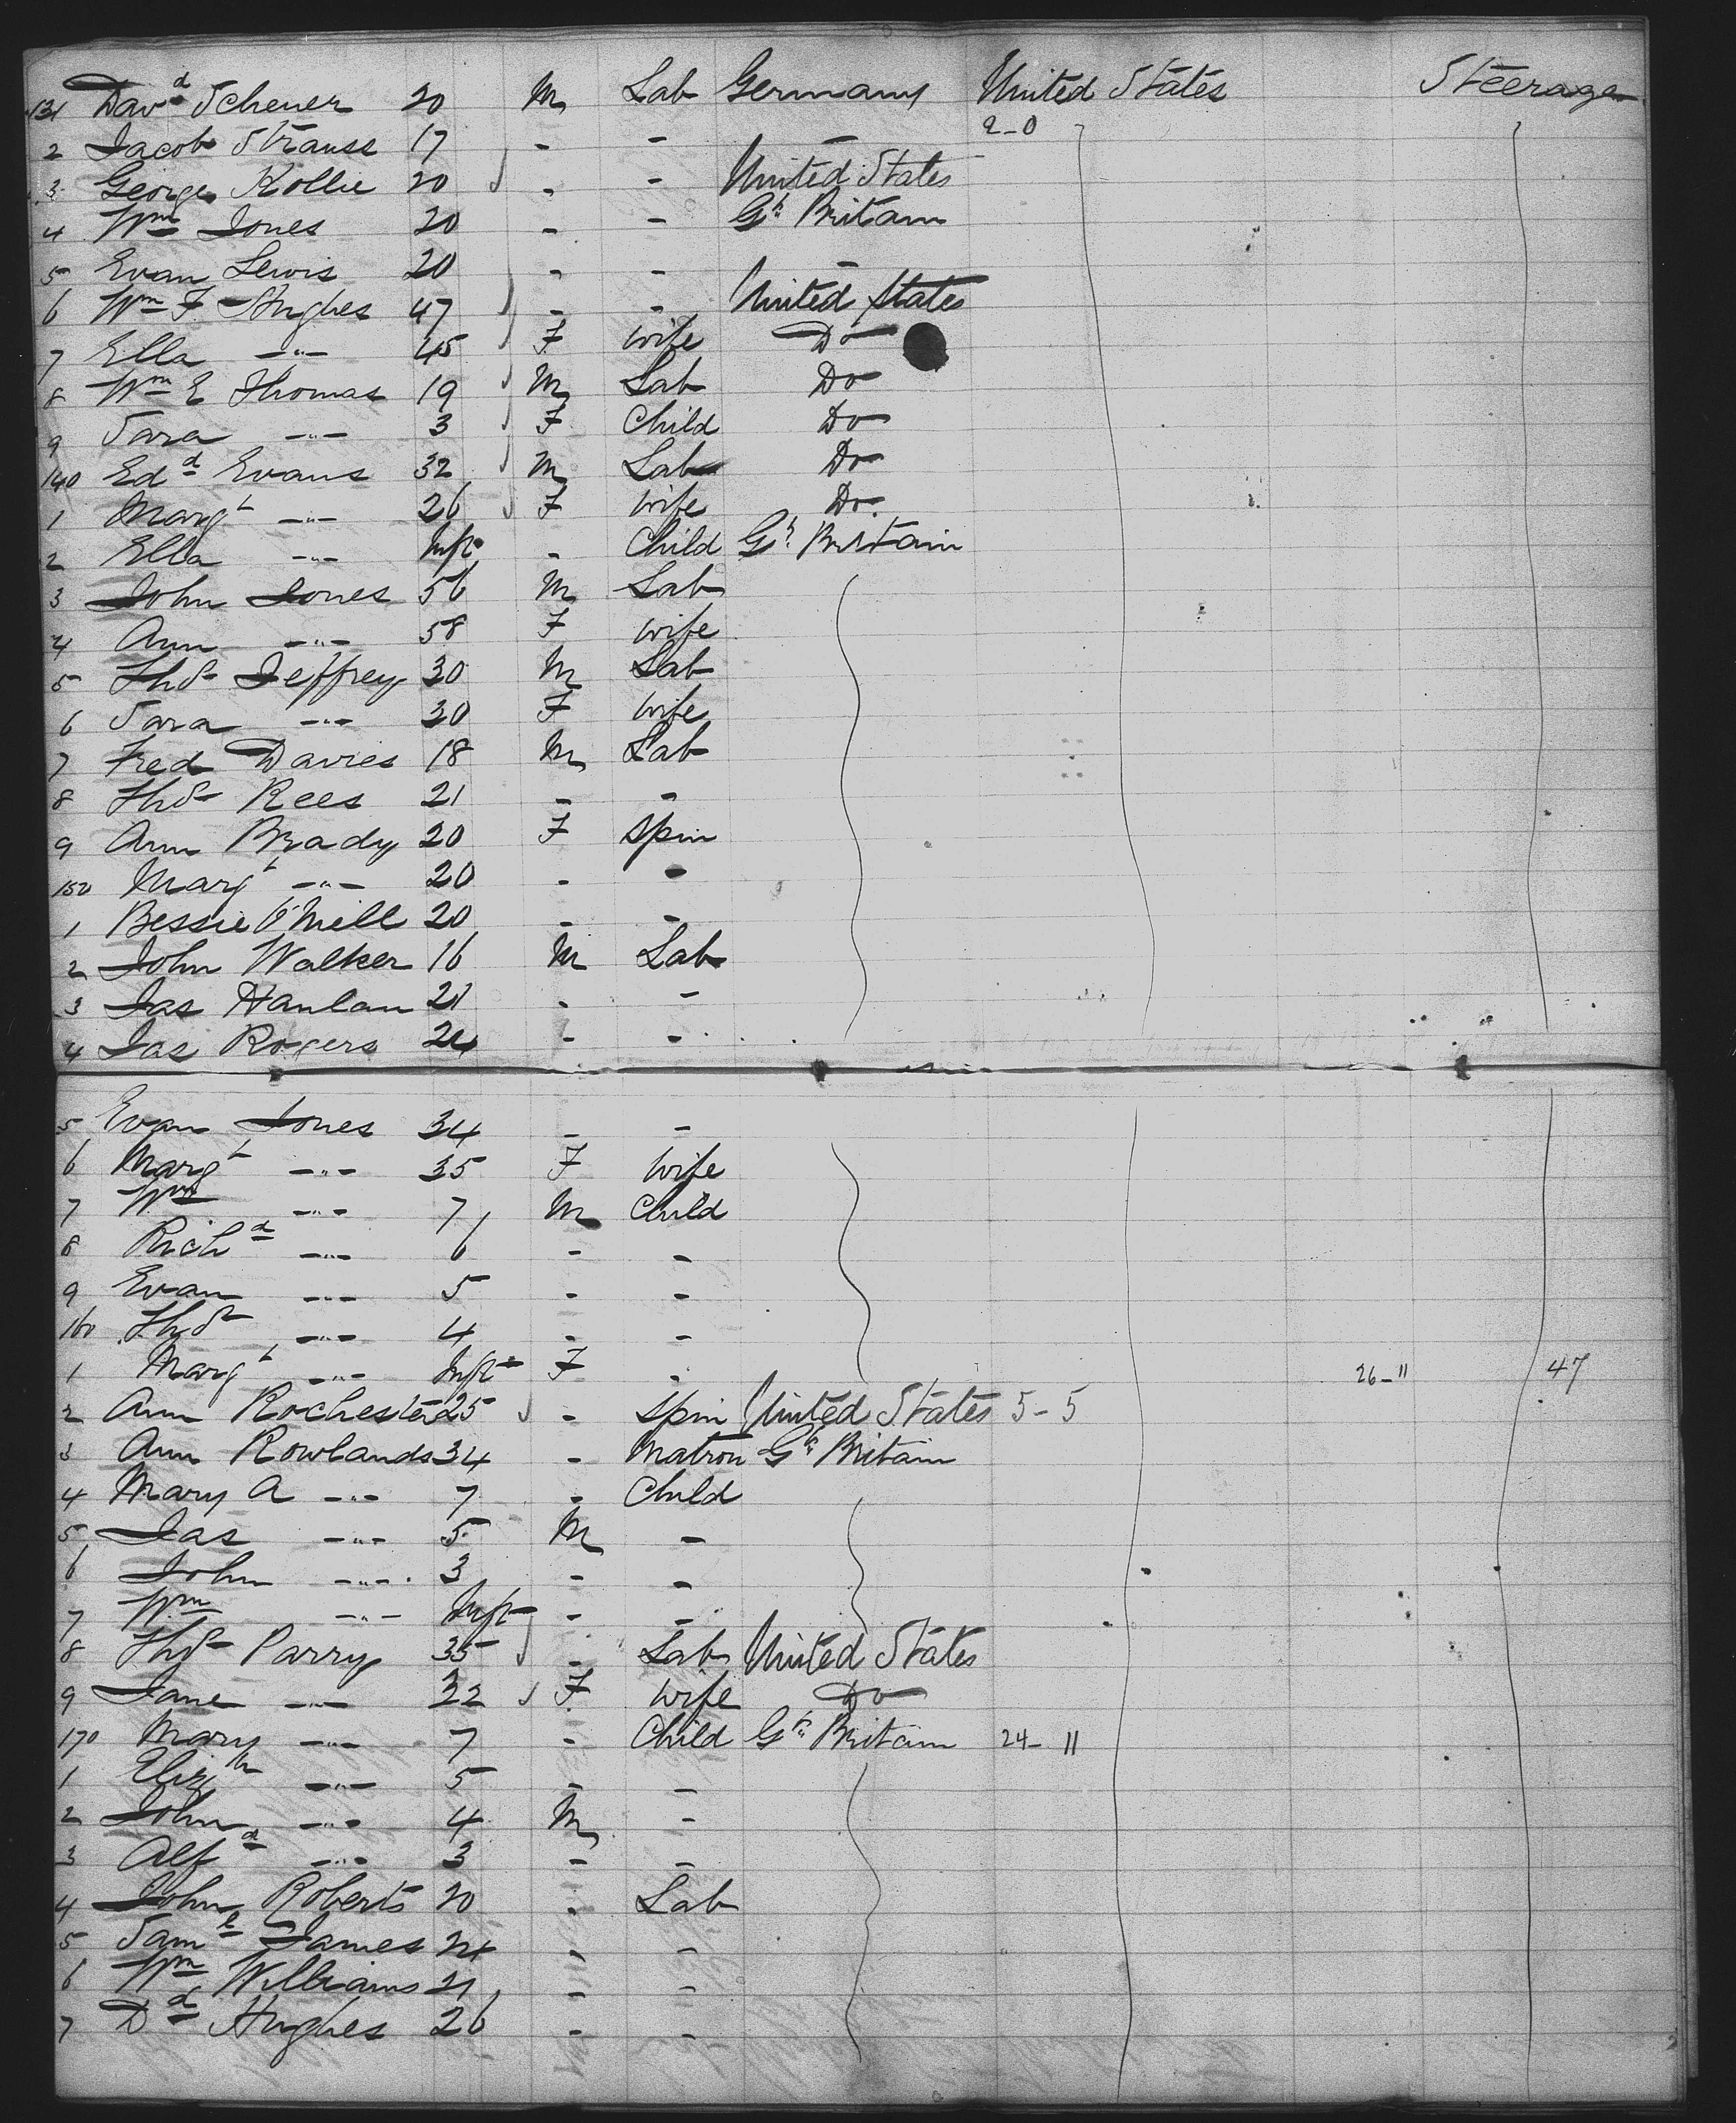 131 Dav^d Scheuer 20 M Lab Germany United States Steerage
2-0
2 Jacob Strauss 17 - - -
3 George Kollie 20 - - United States
4 W^m Jones 20 - - G^t Britain
5 Evan Lewis 20 - - -
6 W^m F. Hughes 47 - - United States
7 Ella -"- 45 F wife Do
8 W^m E Thomas 19 M Lab Do
9 Sara -"- 3 F Child Do
140 Ed^d Evans 32 M Lab Do
1 Marg^t -"- 26 F wife Do
2 Ella -"- Inft - Child G^t Britain
3 John Jones 56 M Lab
4 Ann -"- 58 F wife
5 Thos Jeffrey 30 M Lab
6 Sara -"- 30 F wife
7 Fred Davies 18 M Lab
8 Thos Rees 21 - -
9 Ann Brady 20 F Spin
150 Marg^t -"- 20 - -
1 Bessie O'Neill 20 - -
2 John Walker 16 M Lab
3 Jas Hanlan 21 - -
4 Jas Rogers 24 - -
5 Evan Jones 34 - -
6 Marg^t -"- 35 F wife
7 W^m -"- 7 M Child
8 Rich^d -"- 6 - -
9 Evan -"- 5 - -
160 Thos -"- 4 - -
1 Marg^t -"- Inft F - 26-11 47
2 Ann Rochester 25 - Spin United States 5-5
3 Ann Rowlands 34 - Matron G^t Britain
4 Mary A -"- 7 - Child
5 Jas -"- 5 M -
6 John -"- 3 - -
7 W^m -"- Inft - -
8 Thos Parry 35 - Lab United States
9 Jane -"- 22 F wife Do
170 Mary -"- 7 - Child G^t Britain 24-11
1 Eliz^th -"- 5 - -
2 John -"- 4 M -
3 Alf^d -"- 3 - -
4 John Roberts 20 - Lab
5 Sam^l James 24 - -
6 W^m Williams 21 - -
7 D^d Hughes 26 - -